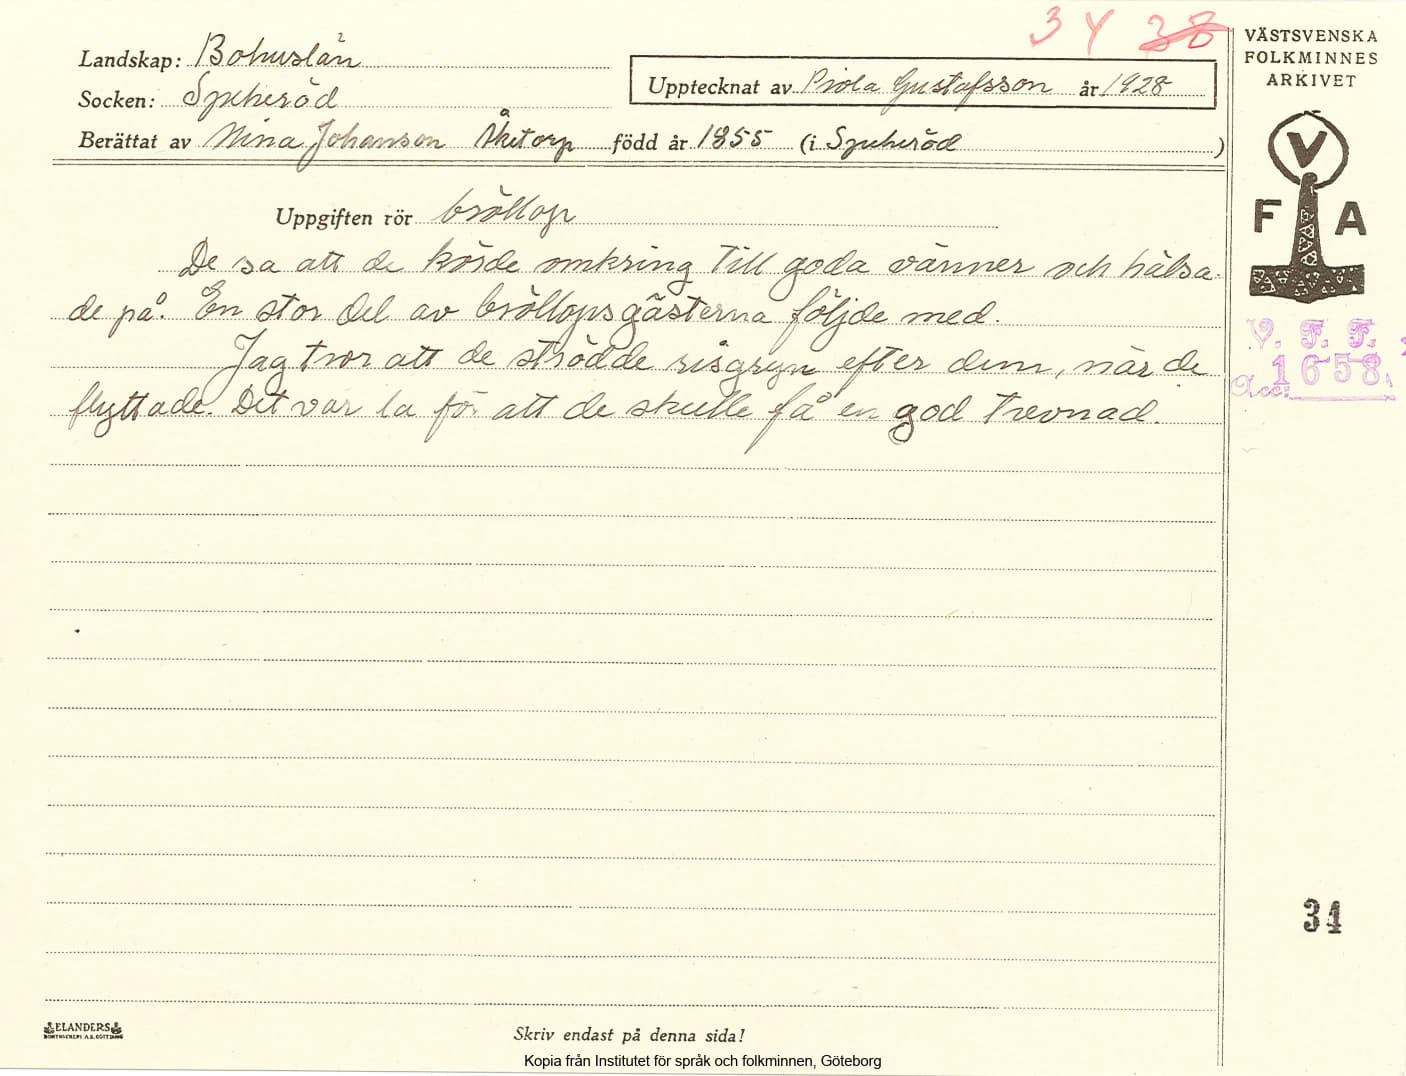 34 38
Landskap: Bohuslän
Socken: Spekeröd
Upptecknat av Viola Gustafsson år 1928
Berättat av Nina Johanson Åketorp född år 1855 (i Spekeröd )
VÄSTSVENSKA
FOLKMINNES
ARKIVET
V
F A
Uppgiften rör bröllop
De sa att de körde omkring till goda vänner och hälsa-
de på. En stor del av bröllopsgästerna följde med.
Jag tror att de strödde risgryn efter dem, när de
flyttade. Det var la för att de skulle få en god trevnad.
V. F. F.
Acc: 1658
34
ELANDERS
Skriv endast på denna sida!
Kopia från Institutet för språk och folkminnen, Göteborg